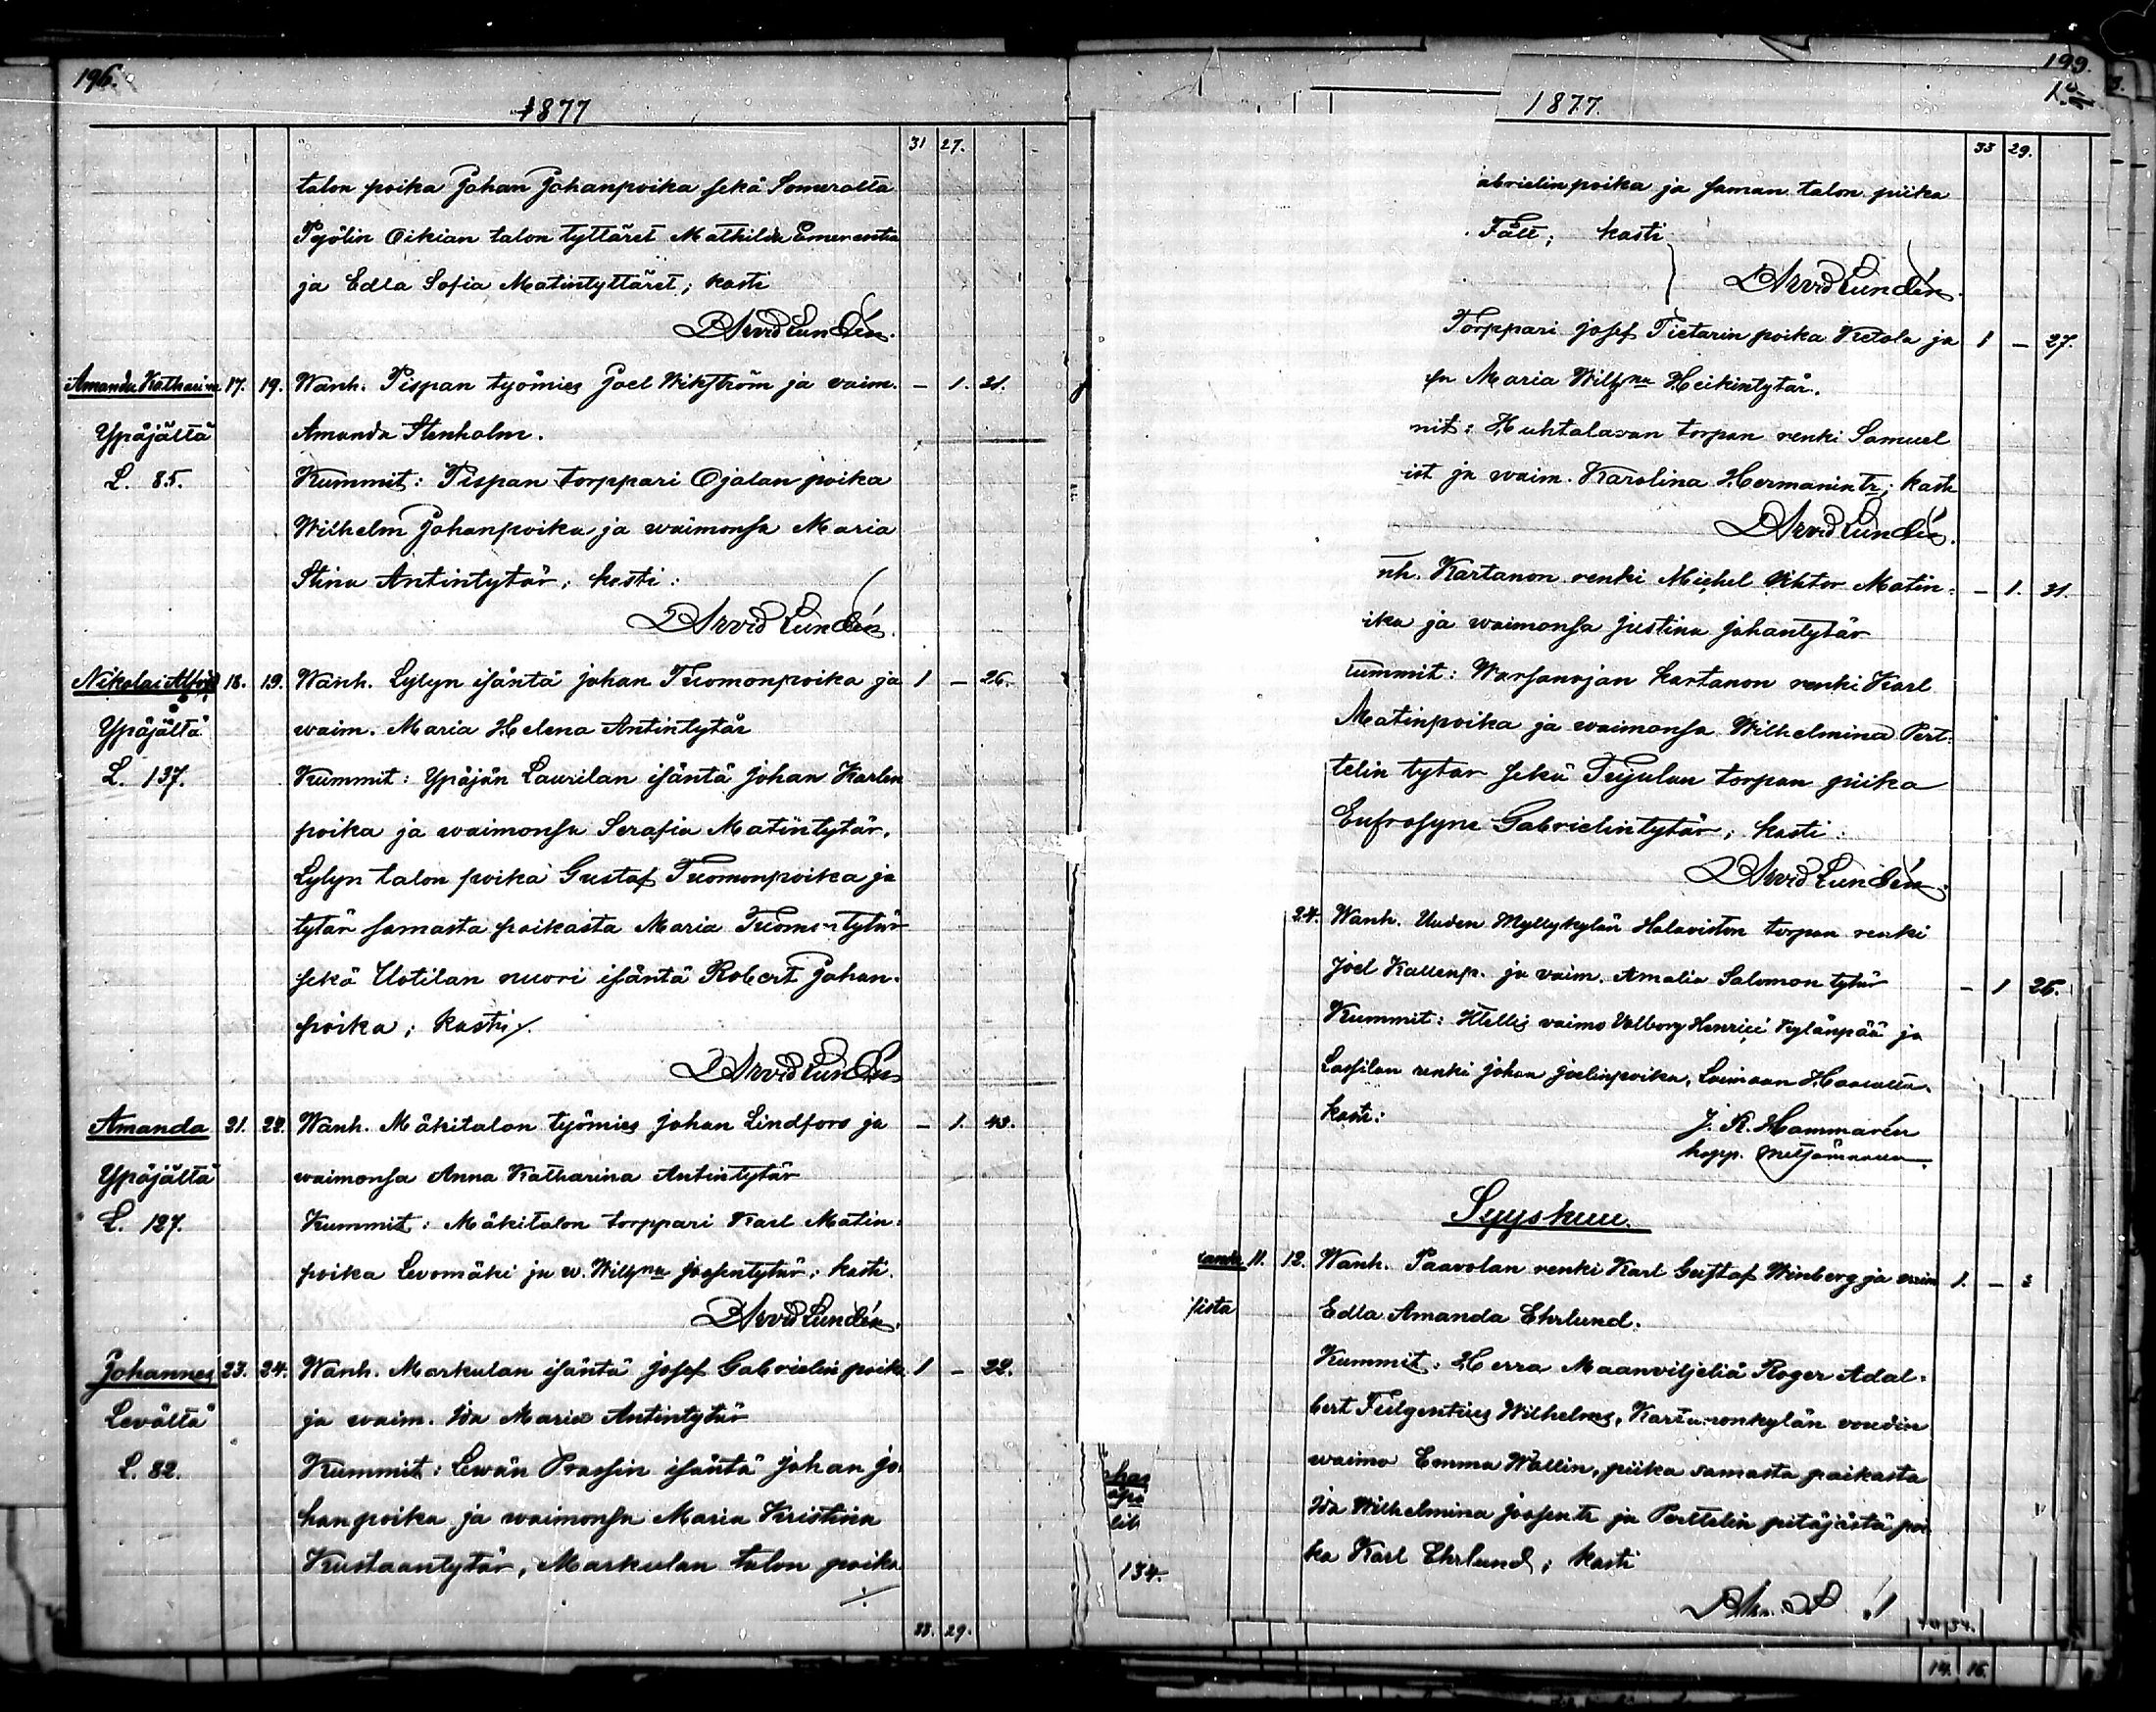 196.
1877
31 27.
talon poika Johan Johanpoika sekä Somerolta
Pyölin Oikian talon tyttäret Mathilda Emerentia
ja Edla Sofia Matintyttäret; kasti
Arvid Lundén.
Amanda Katharina 17. 19. Wanh. Pispan työmies Joel Wikström ja vaim. – 1. 21.
Ypäjältä Amanda Stenholm.
L. 85. Kummit: Pispan torppari Ojalan poika
Wilhelm Johanpoika ja waimonsa Maria
Stina Antintytär; kasti:
Arvid Lundén.
Nikolai 18. 19. Wanh. Lylyn isäntä Johan Tuomonpoika ja 1 – 26.
Ypäjältä waim. Maria Helena Antintytär
L. 137. Kummit: Ypäjän Laurilan isäntä Johan Karlen
poika ja waimonsa Serafia Matintytär,
Lylyn talon poika Gustaf Tuomonpoika ja
tytär samasta paikasta Maria Tuomontytär
sekä Uotilan nuori isäntä Robert Johan-
poika; kasti
Arvid Lundén
Amanda 21. 22. Wanh. Mäkitalon työmies Johan Lindfors ja – 1. 43.
Ypäjältä waimonsa Anna Katharina Antintytär
L. 127. Kummit: Mäkitalon torppari Karl Matin-
poika Levomäki ja w. Wilhna Josefintytär; kasti.
Arvid Lundén.
Johannes 23. 24. Wanh. Markulan isäntä Josef Gabrielin poika 1 – 22.
Levältä ja waim. Ida Maria Antintytär
L. 82. Kummit: Lewän Prassin isäntä Johan Jo-
hanpoika ja waimonsa Maria Kristina
Kustaantytär, Markulan talon poika
33. 29.
199.
1877.
33 29.
abrielinpoika ja saman talon piika
Fält; kasti
Arvid Lundén.
Torppari Josef Tietarin poika Ketola ja 1 – 27.
sa Maria Wilhna Heikintytär.
mit: Huhtalavan torpan renki Samuel
ist ja waim. Karolina Hermanintr; kasti
Arvid Lundén.
nh. Kartanon renki Michel Viktor Matin- – 1. 31.
ika ja waimonsa Justina Johantytär
ummit: Warsanojan kartanon renki Karl
Matinpoika ja waimonsa Wilhelmina Pert-
telin tytär sekä Tujulan torpan piika
Eufrosyne Gabrielintytär; kasti:
Arvid Lundén.
24. Wanh. Uuden Myllykylän Halaviston torpan renki
Joel Kallenp. ja vaim. Amalia Salomon tytär – 1 26.
Kummit: vaimo Valborg Henrici Kylänpää ja
Lassilan renki Johan Joelinpoika, Loimaan
kasti: J. K. Hammarén
kapp.
Syyskuu.
11. 12. Wanh. Paavolan renki Karl Gustaf Winberg ja vaim 1. –
sista Edla Amanda Ehrlund.
Kummit: Herra Maanviljeliä Roger Adal-
bert Fulgentius Wilhelms, Kartanonkylän voudin
waimo Emma Wallin, piika samasta paikasta
Ida Wilhelmina Josefintr ja Perttelin pitäjästä poi
ka Karl Ehrlund; kasti
134.
14. 16.